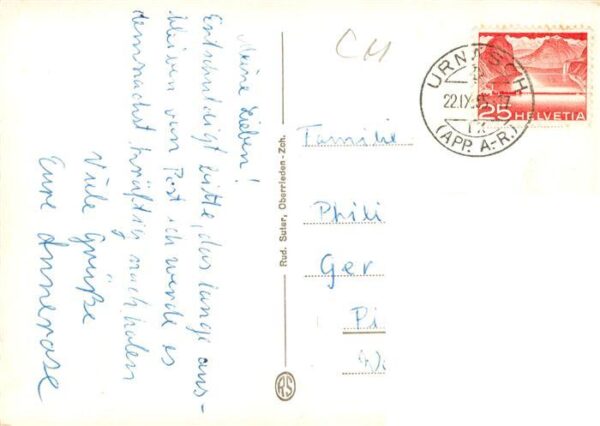 Meine Lieben!
Entschuldigt bitte, das lange aus-
bleiben von Post ich werde es
demnächst kräftig nachholen
Viele Grüße
Eure Annerose
Rud. Suter, Oberrieden-Zch.
RS
CH
URNÄSCH
22.IX.
(APP. A-R.)
25 HELVETIA
Familie
Phili
Ger
Pi